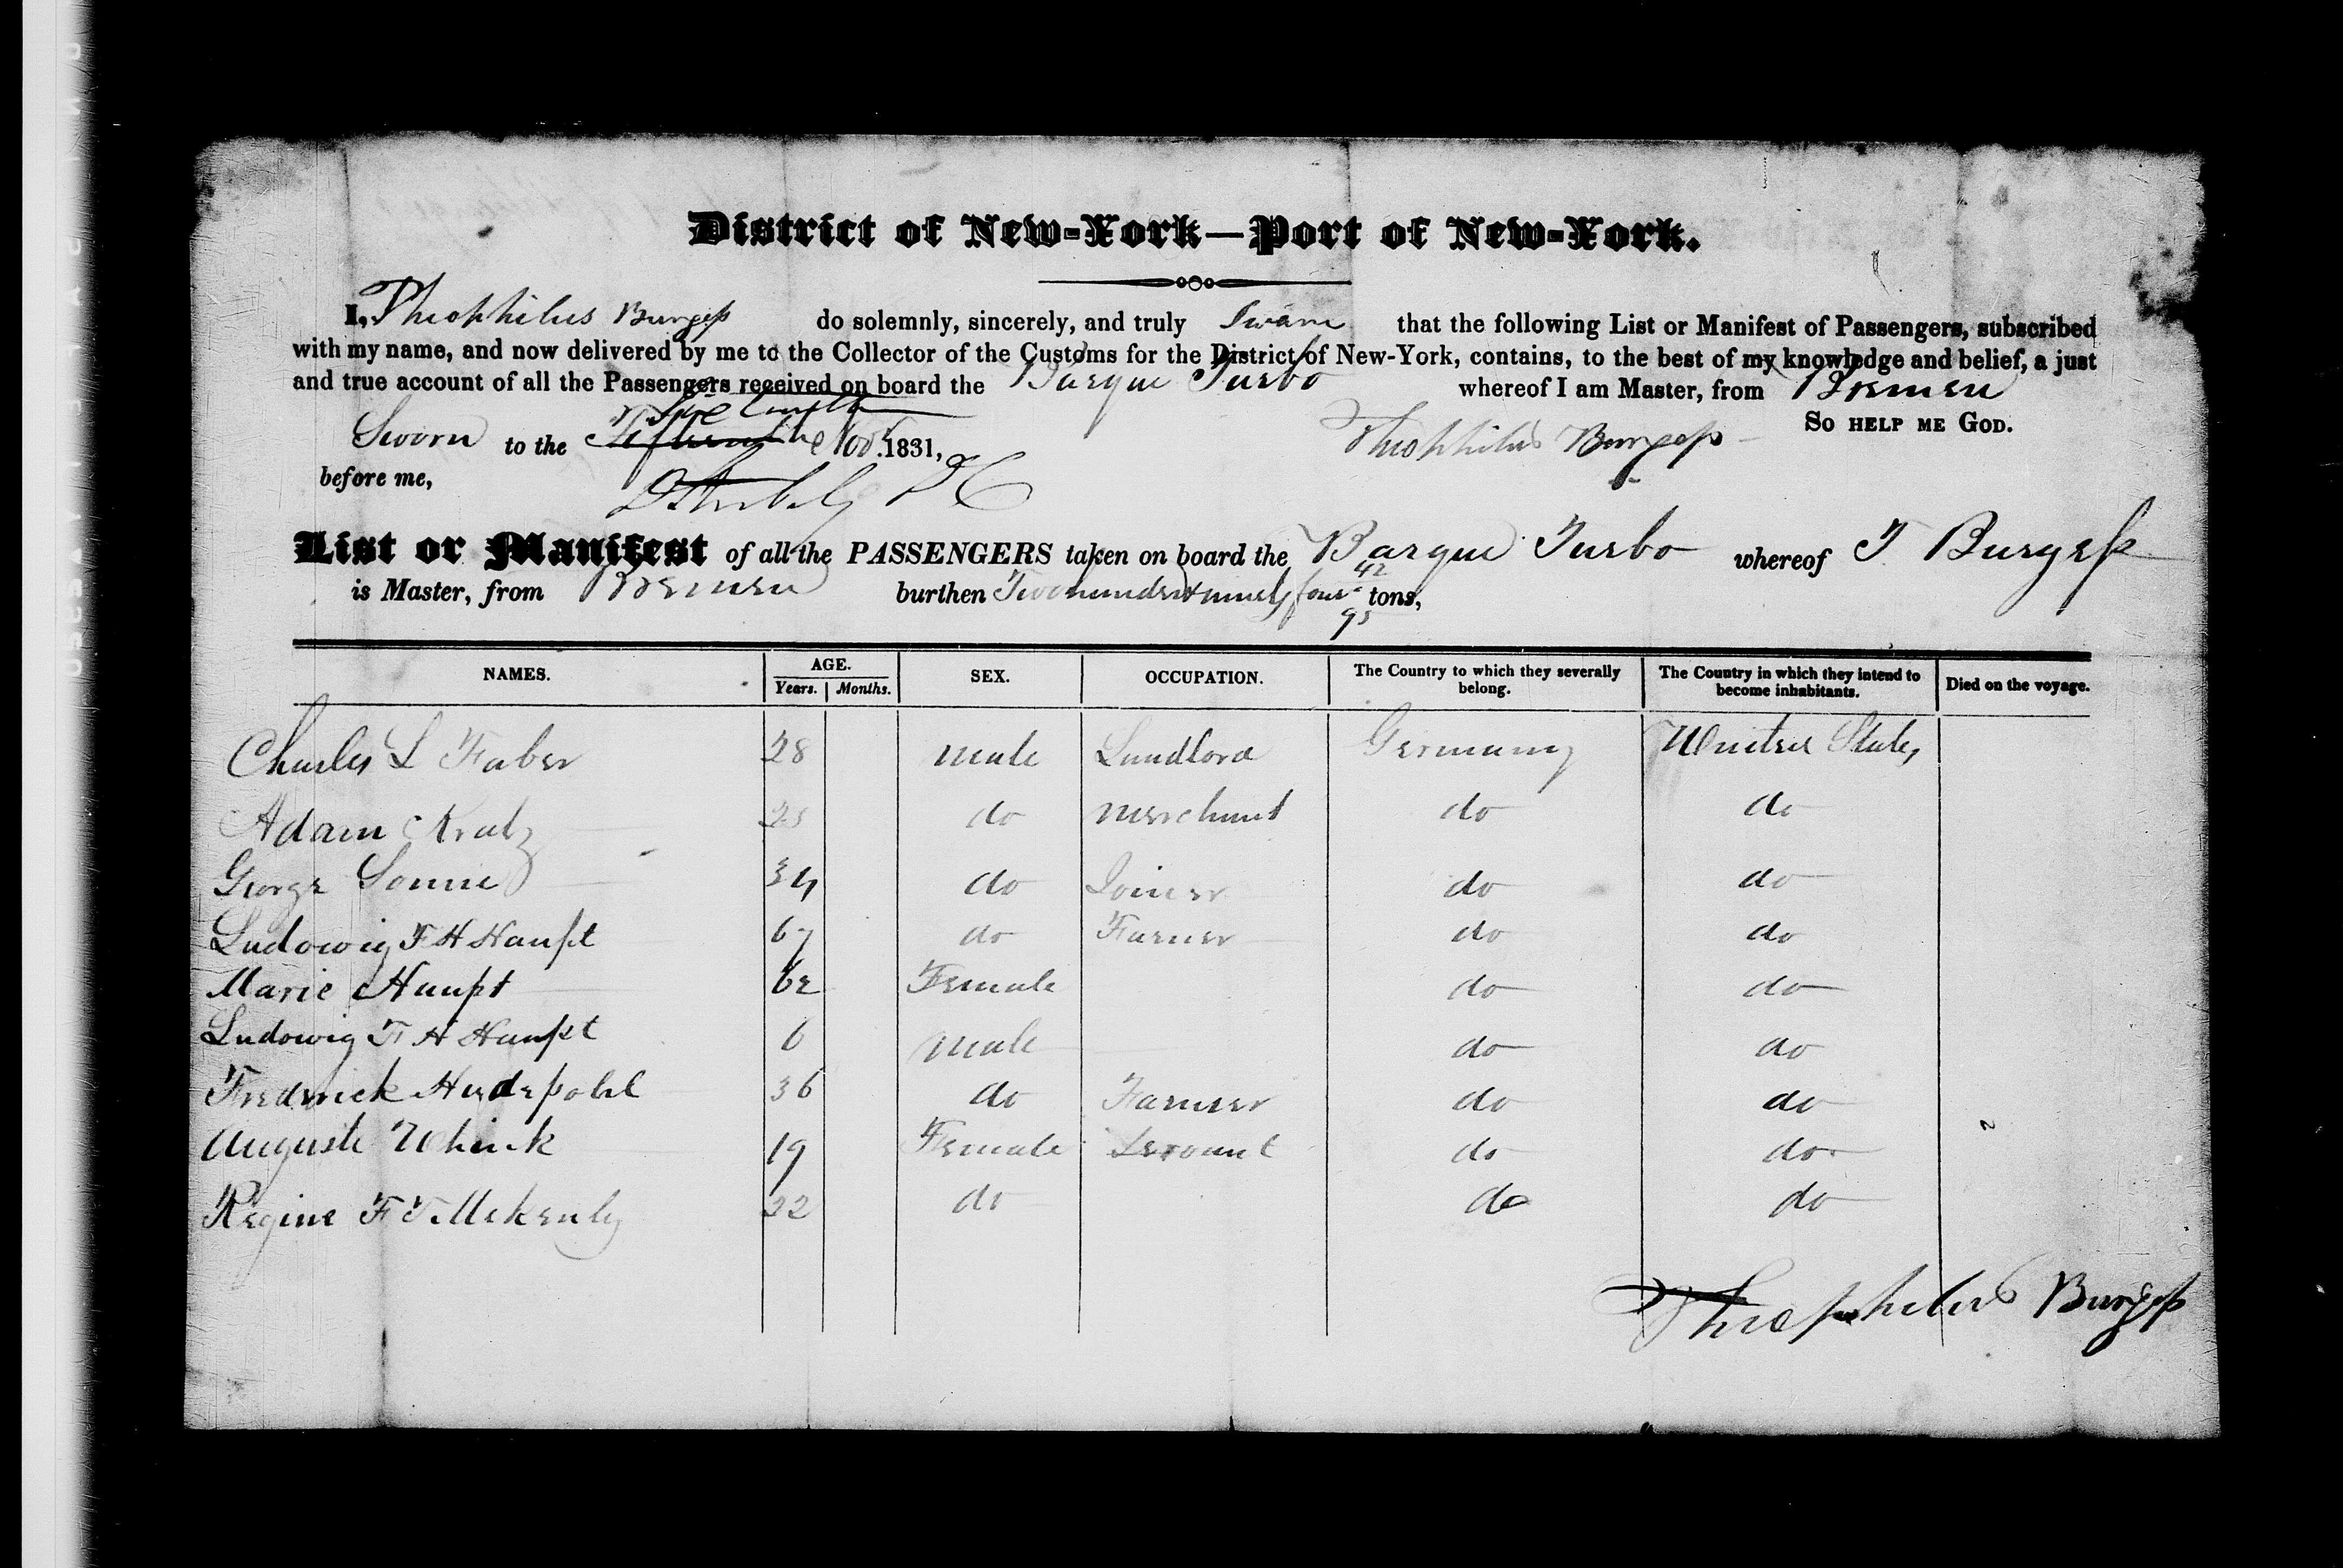 District of New-York—Port of New-York.
I, Theophilus Burgess do solemnly, sincerely, and truly Swear that the following List or Manifest of Passengers, subscribed
with my name, and now delivered by me to the Collector of the Customs for the District of New-York, contains, to the best of my knowledge and belief, a just
and true account of all the Passengers received on board the Barque Turbo whereof I am Master, from Bremen
So help me God.
Sworn to the Nov. 1831, Theophilus Burgess
before me,
List or Manifest of all the PASSENGERS taken on board the Barque Turbo whereof T Burgess
is Master, from Bremen burthen Two hundred & ninety four 42/95 tons,
NAMES. AGE. Years. Months. SEX. OCCUPATION. The Country to which they severally belong. The Country in which they intend to become inhabitants. Died on the voyage.
Charles L Faber 28 male Landlord Germany United States
Adam Kratz 25 do merchant do do
George Sonne 34 do Joiner do do
Ludowig F H Haupt 67 do Farmer do do
Marie Haupt 62 Female do do
Ludowig F H Haupt 6 male do do
Frederick 36 do Farmer do do
Auguste 19 Female Servant do do
Regine F T 22 do do do
Theophilus Burgess